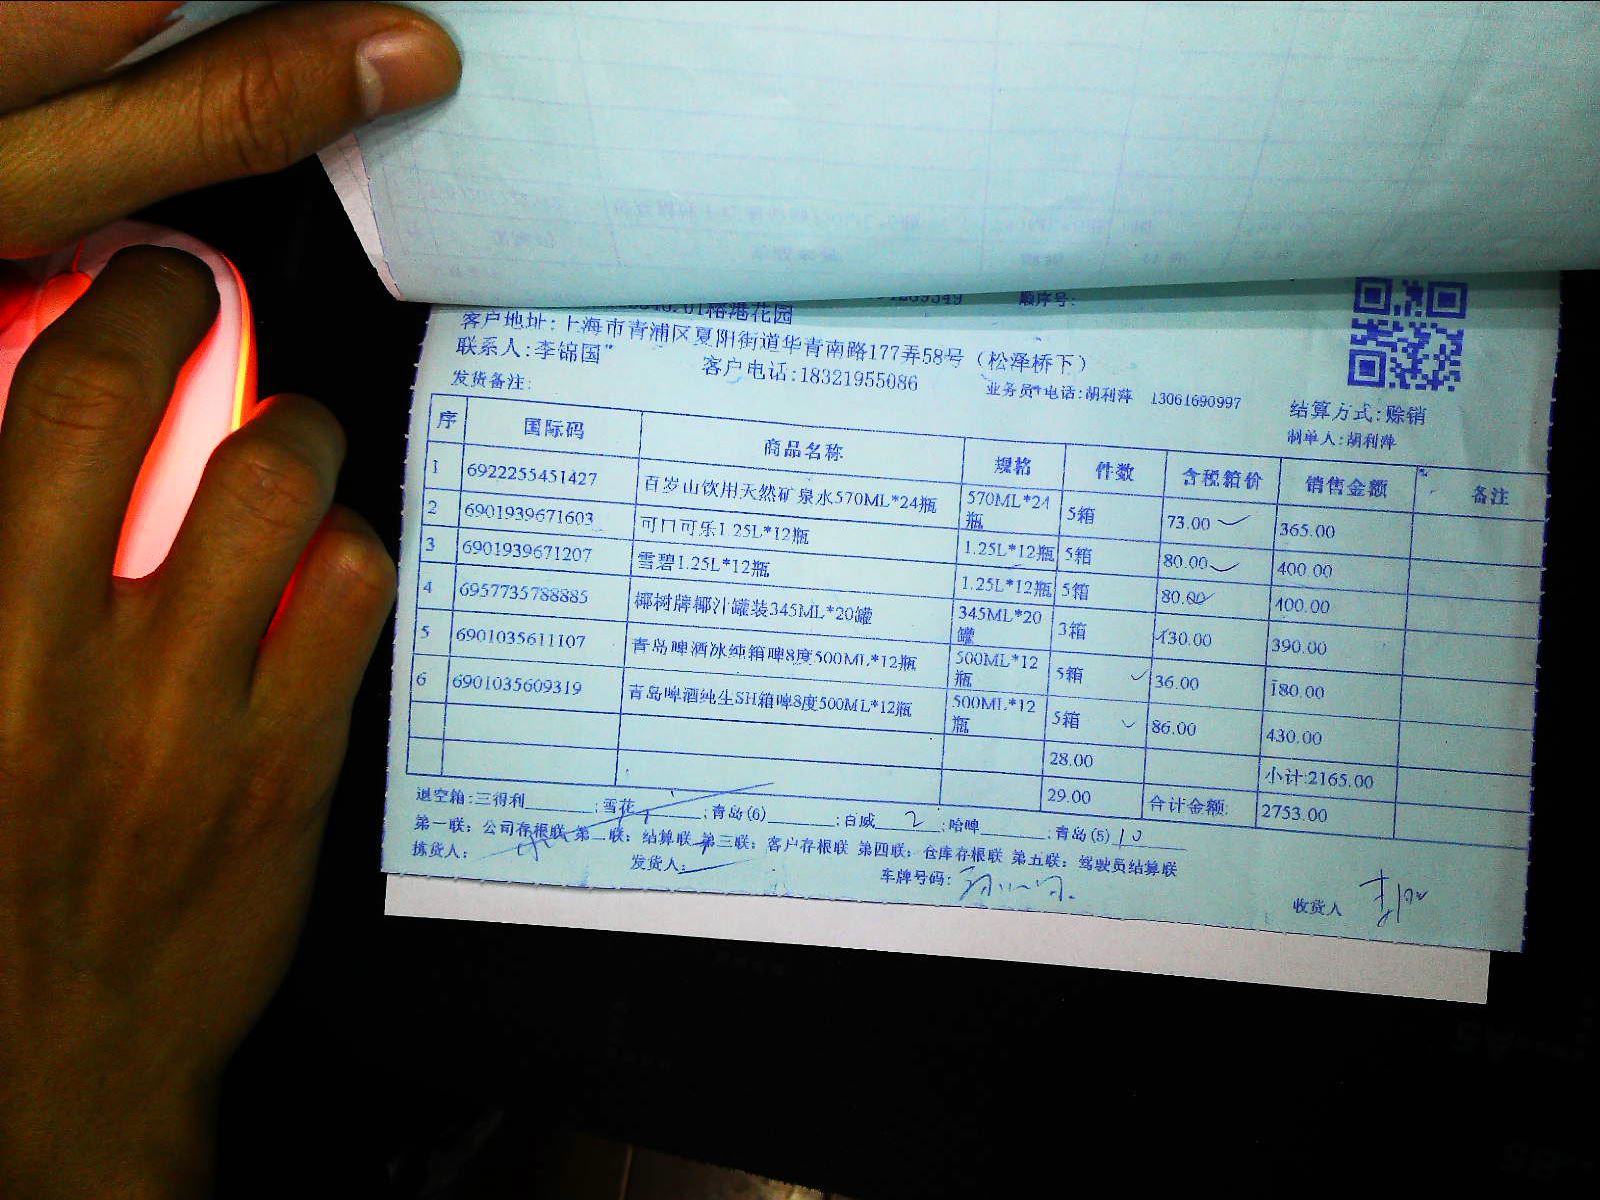 裕港花园
顺序号:
客户地址:上海市青浦区夏阳街道华青南路177弄58号(松泽桥下)
联系人:李锦国"
客户电话:18321955086
业务员+电话:胡利萍 13061690997
结算方式:赊销
发货备注:
制单人:胡利萍
序 国际码 商品名称 规格 件数 含税箱价 销售金额 备注
1 6922255451427 百岁山饮用天然矿泉水570ML*24瓶 570ML*24瓶 5箱 73.00 365.00
2 6901939671603 可口可乐1.25L*12瓶 1.25L*12瓶 5箱 80.00 400.00
3 6901939671207 雪碧1.25L*12瓶 1.25L*12瓶 5箱 80.00 400.00
4 6957735788885 椰树牌椰汁罐装345ML*20罐 345ML*20罐 3箱 130.00 390.00
5 6901035611107 青岛啤酒冰纯箱啤8度500ML*12瓶 500ML*12瓶 5箱 36.00 180.00
6 6901035609319 青岛啤酒纯生SH箱啤8度500ML*12瓶 500ML*12瓶 5箱 86.00 430.00
28.00 小计:2165.00
29.00 合计金额: 2753.00
退空箱:三得利______;雪花______;青岛(6)______;百威 2 ;哈啤______;青岛(5) 10
第一联:公司存根联 第二联:结算联 第三联:客户存根联 第四联:仓库存根联 第五联:驾驶员结算联
拣货人: 发货人: 车牌号码: 收货人